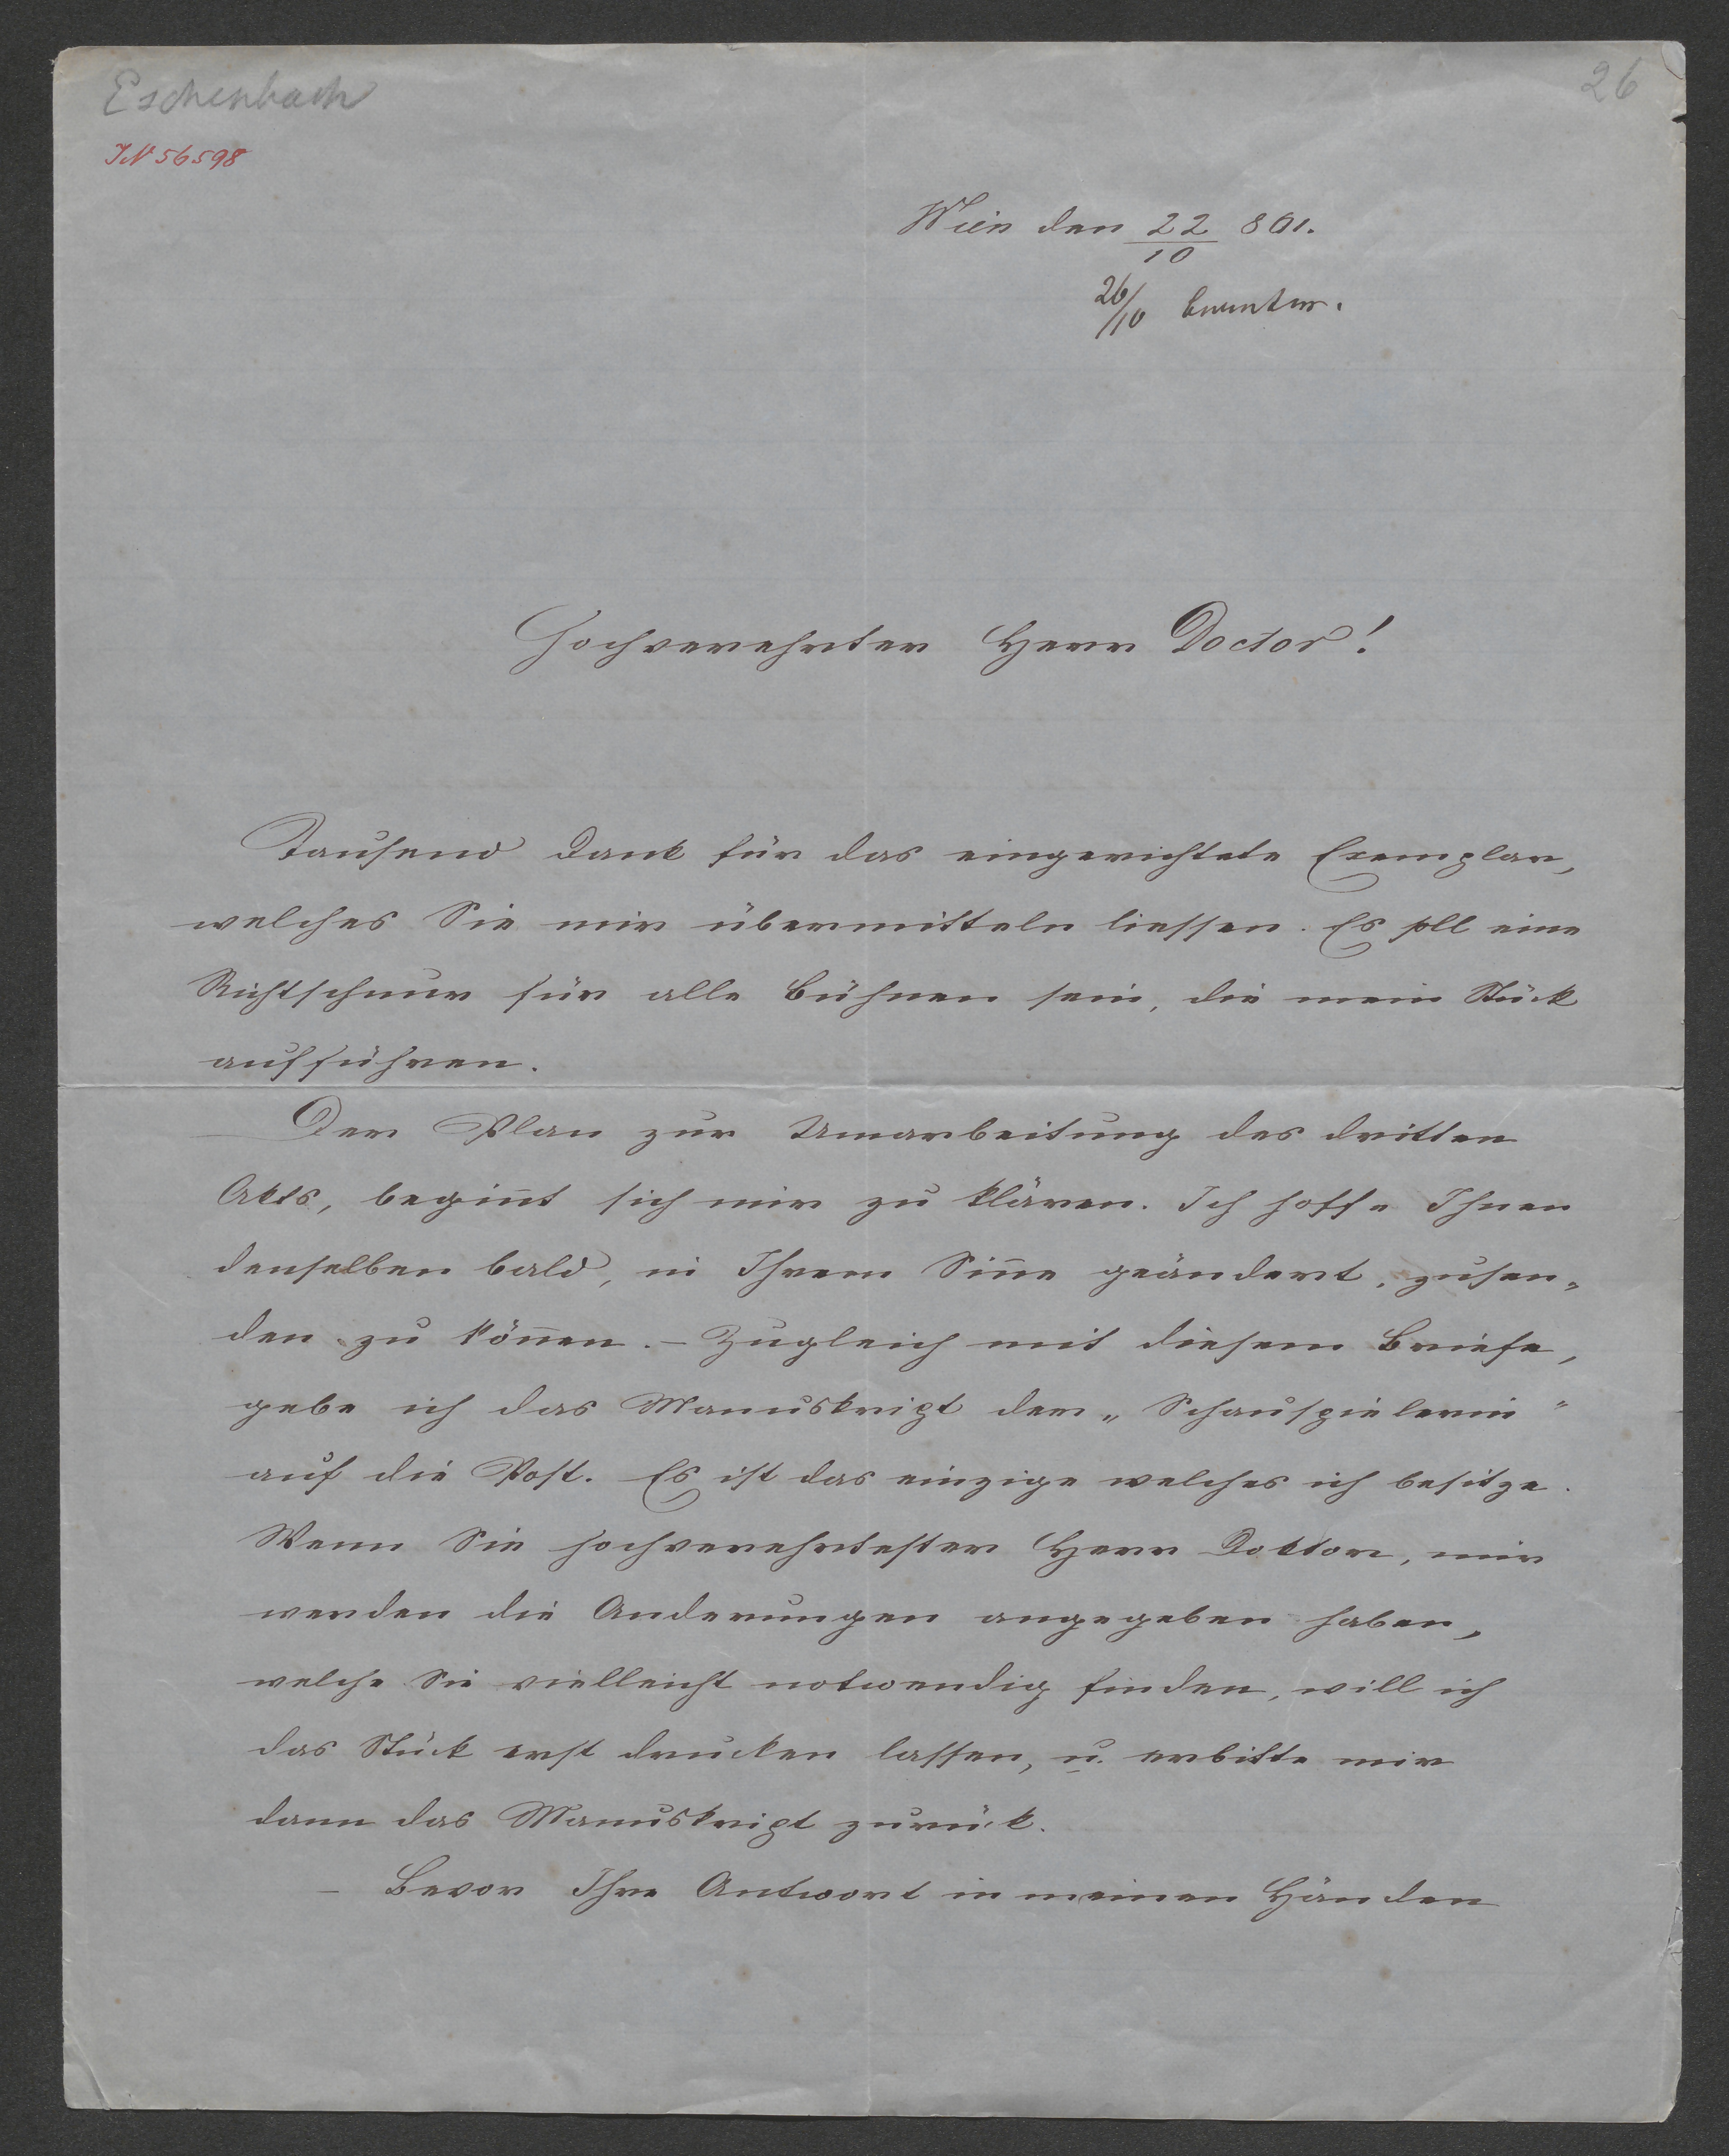 Eschenbach
26
IN 56598
Wien den 22/10 861.
26/10 beantw.
Hochverehrter Herr Doctor!
Tausend Dank für das eingerichtete Exemplar,
welches Sie mir übermitteln liessen. Es soll eine
Richtschnur für alle Bühnen sein, die mein Stück
aufführen.
Der Plan zur Umarbeitung des dritten
Akts, begin̄t sich mir zu klären. Ich hoffe Ihnen
denselben bald, in Ihrem Sin̄e geändert, zusen„
den zu kön̄en. – Zugleich mit diesem Briefe,
gebe ich das Manuskript der „Schauspielerin"
auf die Post. Es ist das einzige welches ich besitze.
Wenn Sie hochverehrtester Herr Doktor, mir
werden die Anderungen angegeben haben,
welche Sie vielleicht notwendig finden, will ich
das Stück erst drucken lassen, u. erbitte mir
dann das Manuskript zurück.
– Bevor Ihre Antwort in meinen Händen